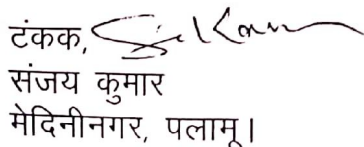 टंकक,
संजय कुमार
मेदिनीनगर, पलामू।